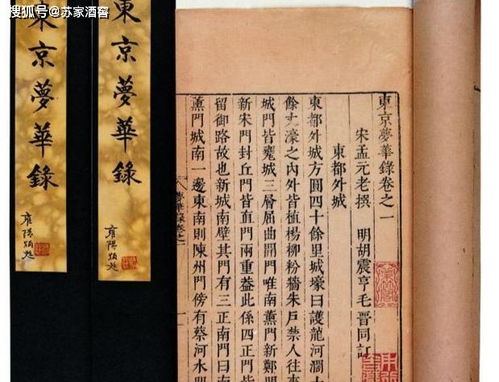 搜狐号@苏家酒窖
東京夢華錄
東京夢華錄
東京夢華錄卷之一
宋孟元老撰 明胡震亨毛晉同訂
東都外城
東都外城方圓四十餘里城壕曰護龍河濶
餘丈濠之內外皆植楊柳粉牆朱戶禁人往來
城門皆甕城三層屈曲開門唯南薰門新鄭
新宋門封丘門皆直門兩重蓋此係四正門皆
留御路故也新城南壁其門有三正南門曰南
薰門城南一邊東南則陳州門傍有蔡河水門